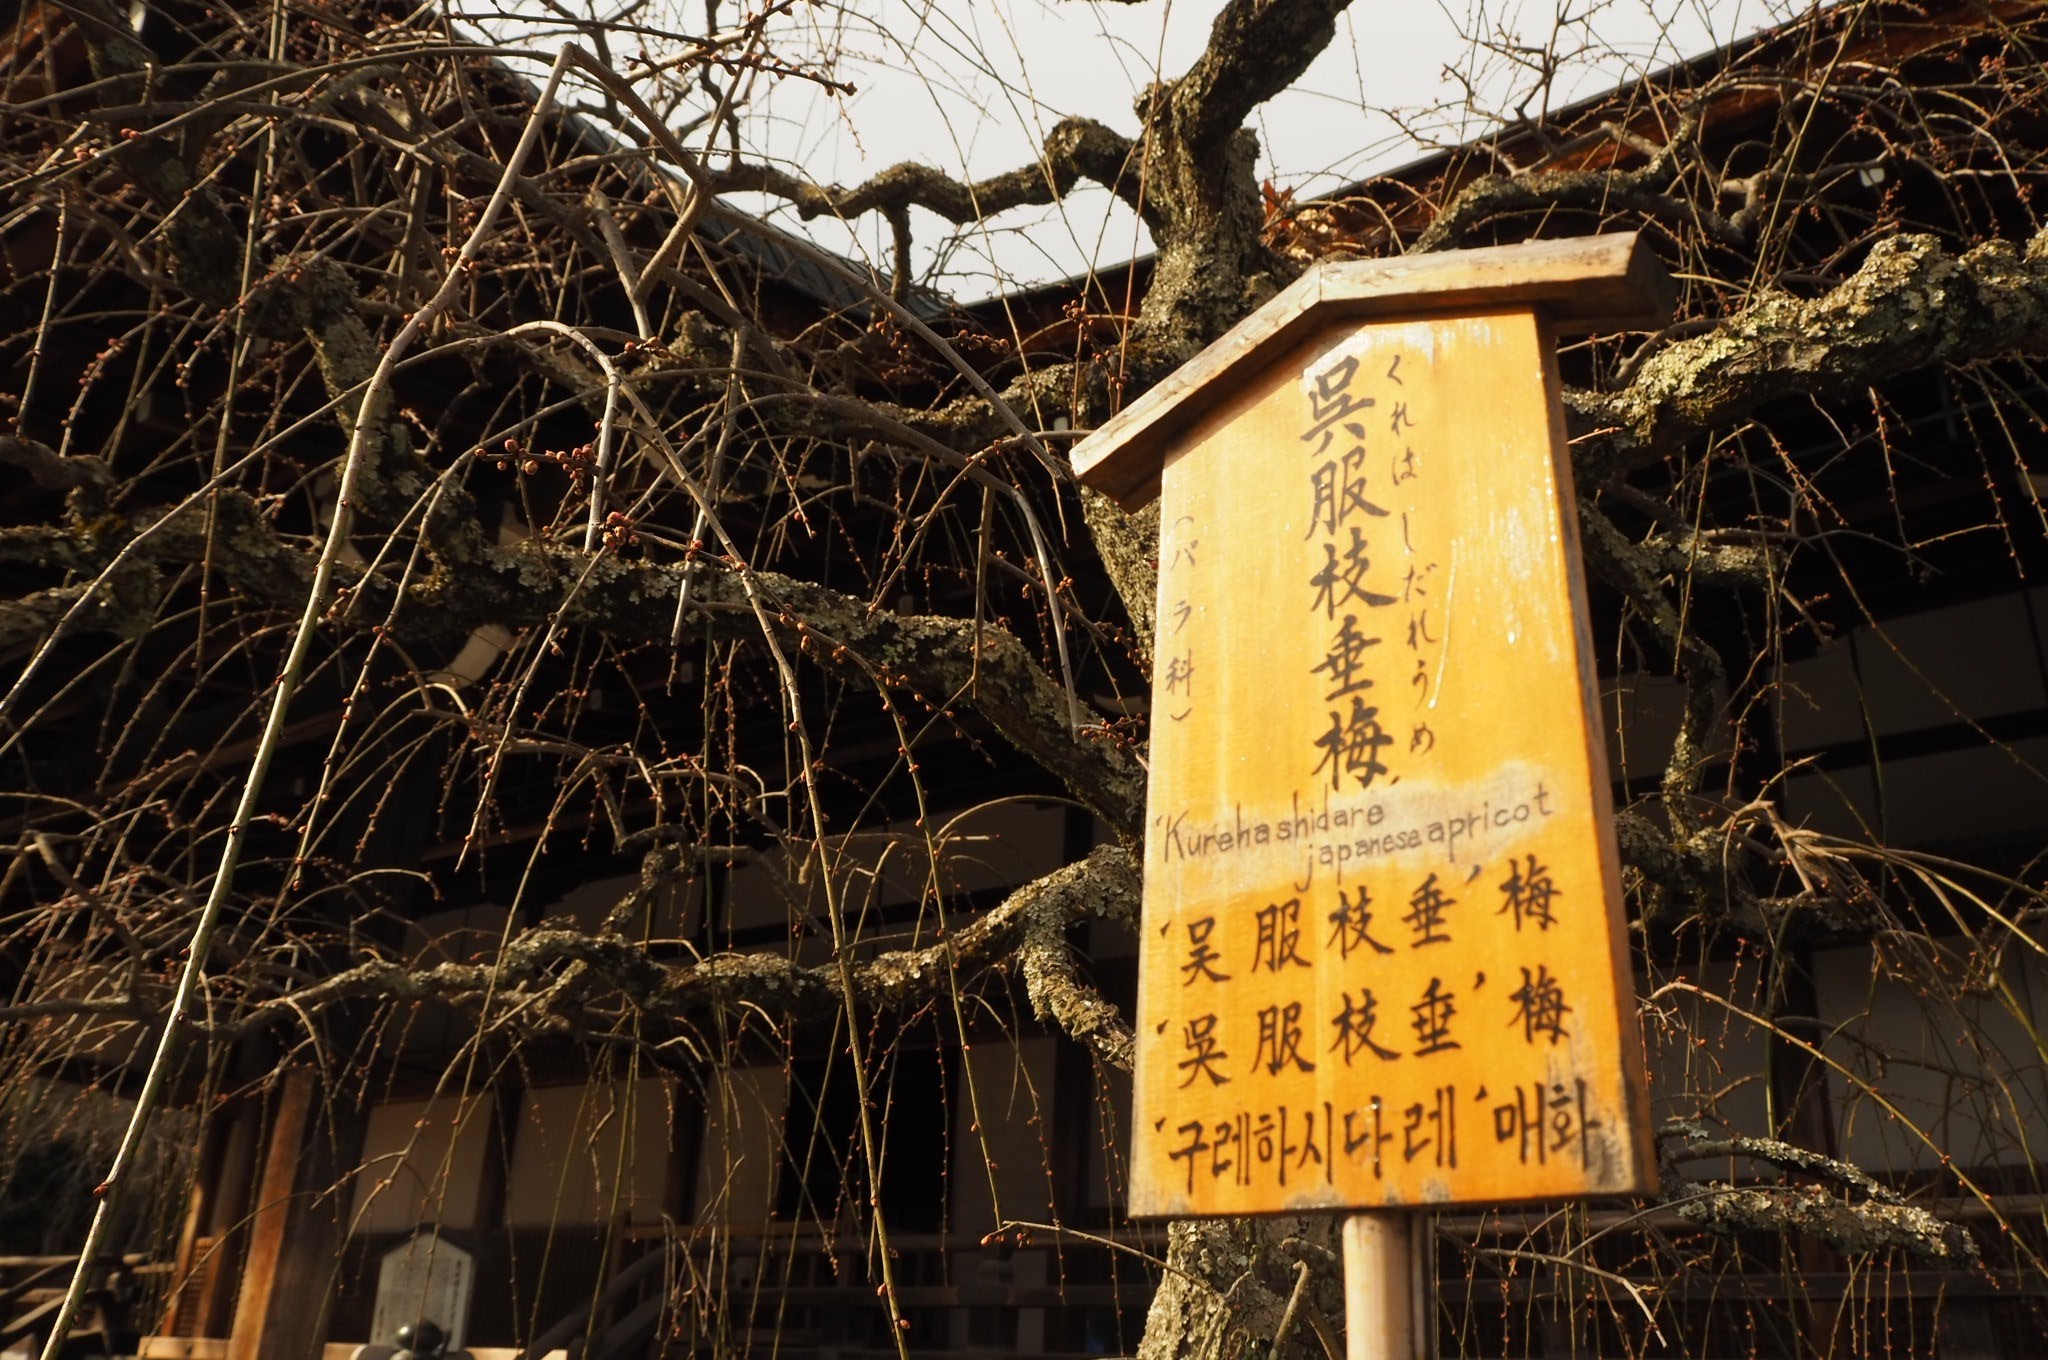 くれはしだれうめ
呉服枝垂梅
(バラ科)
'Kurehashidare'
japanese apricot
'吴服枝垂'梅
'吳服枝垂'梅
'구레하시다레'매화